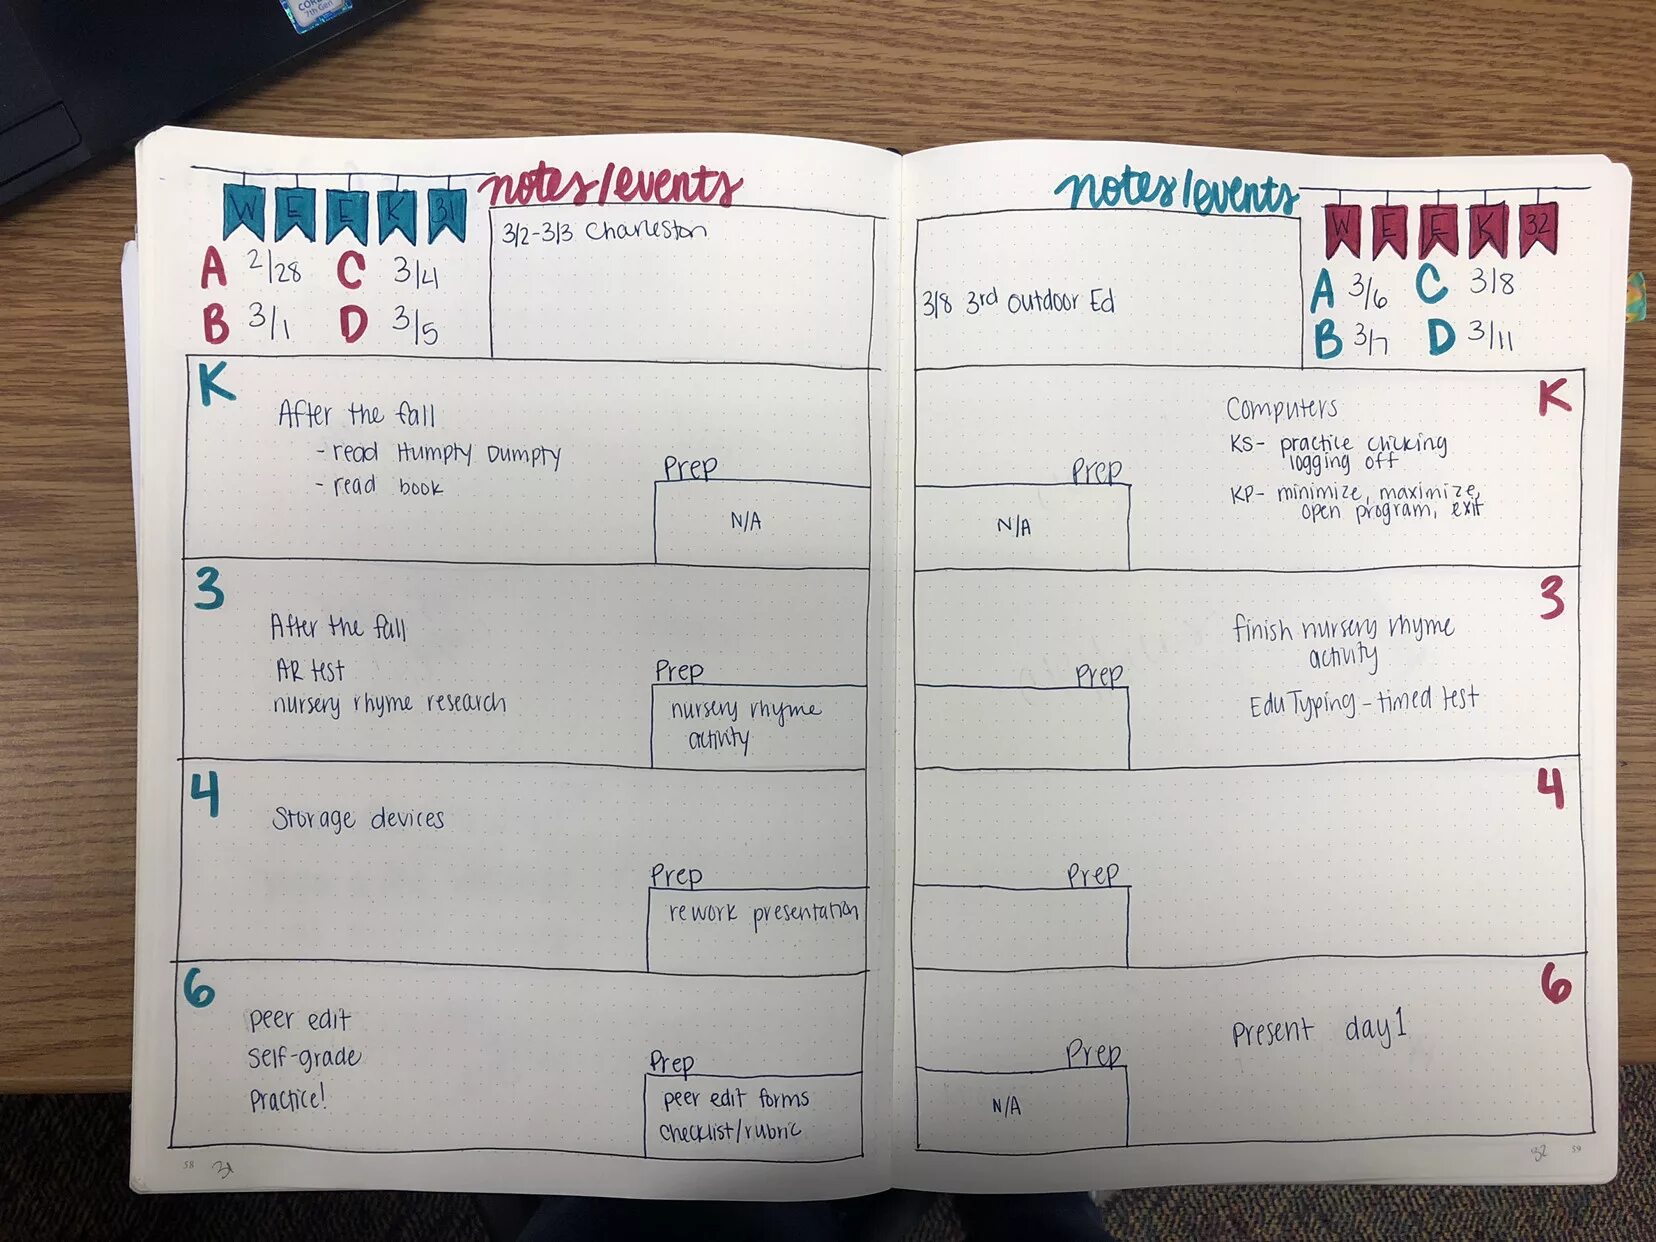 CORE
7th Gen
WEEK 31
notes/events
A 2/28 C 3/4
B 3/1 D 3/5
3/2-3/3 Charleston
K
After the fall
- read Humpty Dumpty
- read book
Prep
N/A
3
After the fall
AR test
nursery rhyme research
Prep
nursery rhyme
activity
4
Storage devices
Prep
rework presentation
6
peer edit
self-grade
practice!
Prep
peer edit forms
checklist/rubric
58 31
notes/events
WEEK 32
3/8 3rd outdoor Ed
A 3/6 C 3/8
B 3/7 D 3/11
K
Computers
KS- practice clicking
logging off
KP- minimize, maximize,
open program, exit
Prep
N/A
3
finish nursery rhyme
activity
EduTyping - timed test
Prep
4
Prep
6
present day 1
Prep
N/A
32 59